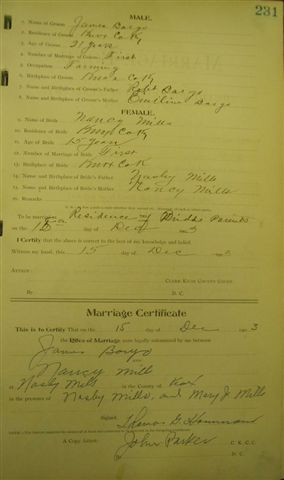 231
MALE.
1. Name of Groom James Bargo
2. Residence of Groom Knox Co Ky
3. Age of Groom 21 years
4. Number of Marriage of Groom First
5. Occupation Farming
6. Birthplace of Groom Knox Co Ky
7. Name and Birthplace of Groom's Father Robt Bargo
8. Name and Birthplace of Groom's Mother Emiline Bargo
FEMALE.
9. Name of Bride Nancy Mills
10. Residence of Bride Knox Co K
11. Age of Bride 15 years
12. Number of Marriage of Bride First
13. Birthplace of Bride Knox Co K
14. Name and Birthplace of Bride's Father Nasby Mills
15. Name and Birthplace of Bride's Mother Nancy Mills
16. Remarks
To be married Residence of Brides Parents
on the 15 day of Dec 3
I Certify that the above is correct to the best of my knowledge and belief.
Witness my hand, this 15 day of Dec 3
Attest:
Clerk Knox County Court
By D. C.
Marriage Certificate
This is to Certify That on the 15 day of Dec 3
the Rites of Marriage were legally solemnized by me between
James Bargo
and
Nancy Mill
at Nasby Mill in the County of Knox
in the presence of Nasby Mills, and Mary J. Mills
Signed
A Copy Attest: John Parker C. K. C. C.
By D. C.